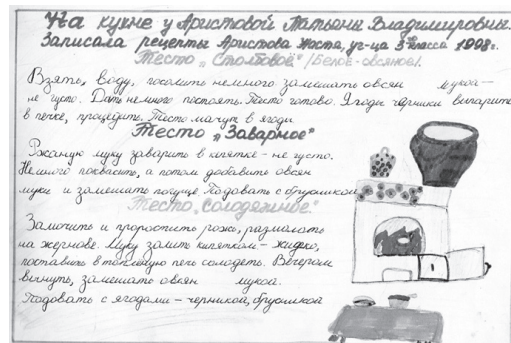 На кухне у Аристовой Татьяны Владимировны.
Записала рецепты Аристова Настя, уч-ца 5 класса 1998г.
Тесто „Столбовой" /Белое-овсяное/.
Взять воду, посолить немного замешать овсян мукой-
не густо. Дать немного постоять. Тесто готово. Ягоды черники выпарить
в печке, процедить. Тесто мачут в ягоды
Тесто „Заварное"
Ржаную муку заварить в кипятке-не густо.
Немного поквасить, а потом добавить овсян
муки и замешать погуще. Подавать с брусникой
Тесто „Солодяжное".
Замочить и проростить рожь, размолоть
на жернове. Муку залить кипятком - жидко,
поставить в топленую печь солодеть. Вечером
вынуть, замешать овсян мукой.
Подовать с ягодами - черникой, брусникой